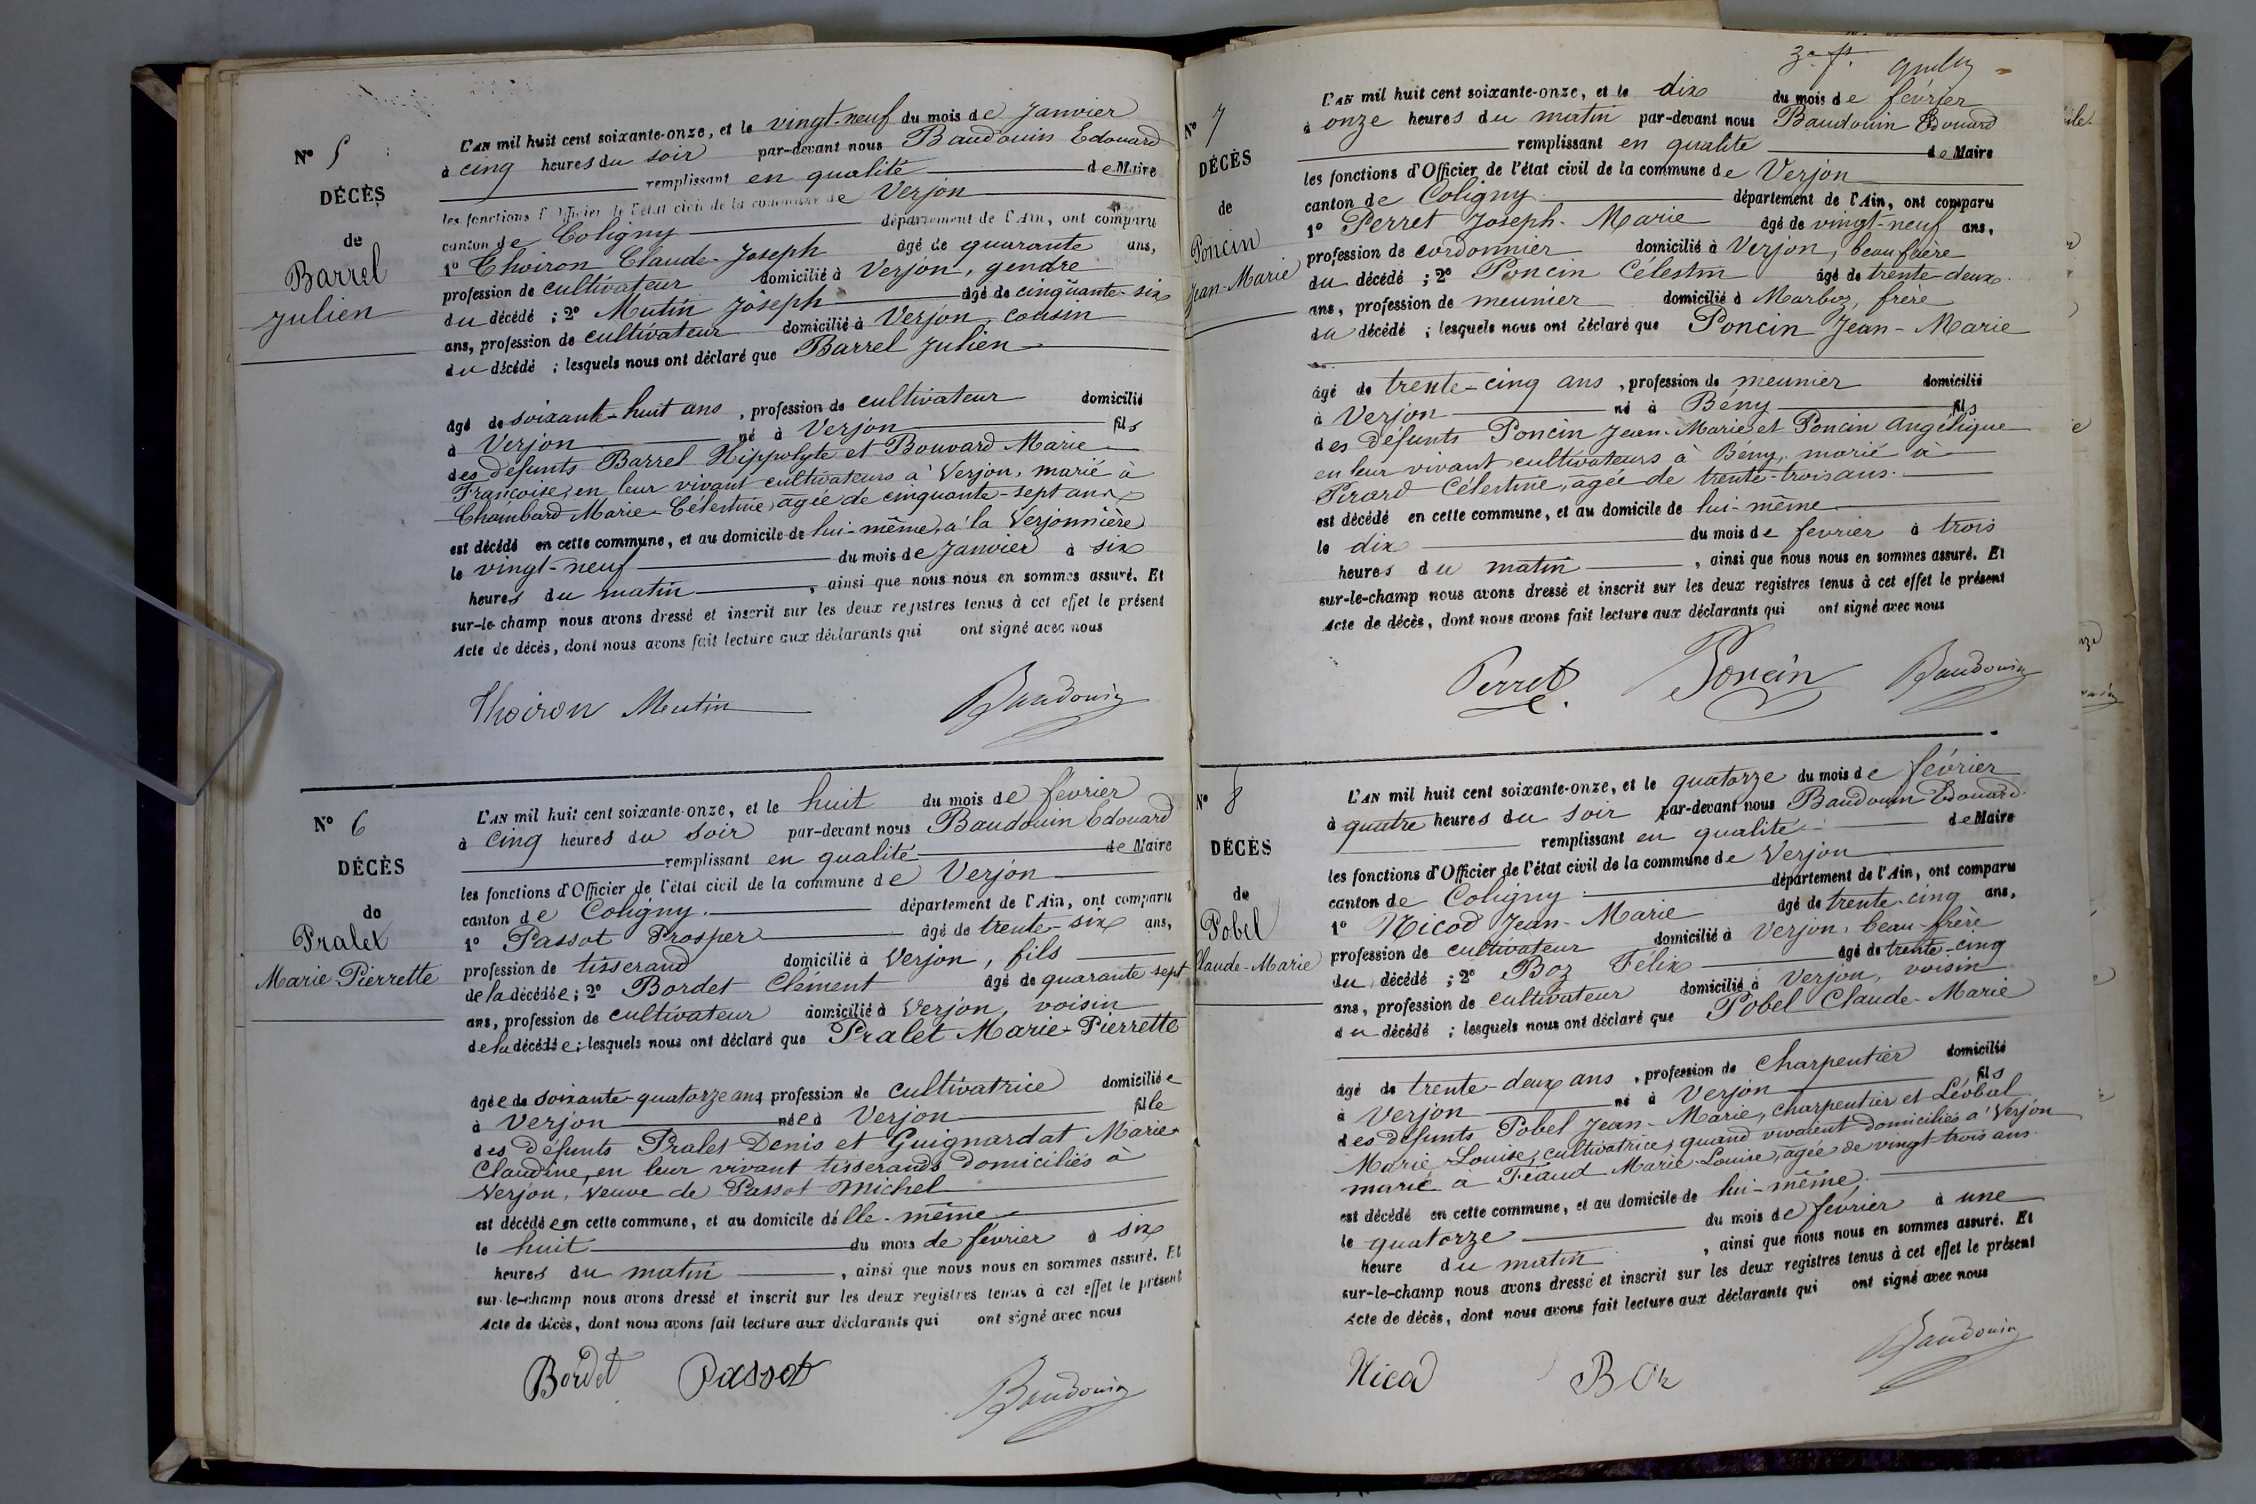 N° 5
DÉCÈS
de
Barrel
Julien
L'AN mil huit cent soixante-onze, et le vingt-neuf du mois de Janvier
à cinq heures du soir par-devant nous Baudouin Edouard
remplissant en qualité de Maire
les fonctions d'Officier de l'état civil de la commune de Verjon
canton de Coligny département de l'Ain, ont comparu
1° Thoiron Claude-Joseph âgé de quarante ans,
profession de cultivateur domicilié à Verjon, gendre
du décédé ; 2° Mutin Joseph âgé de cinquante-six
ans, profession de cultivateur domicilié à Verjon, cousin
du décédé ; lesquels nous ont déclaré que Barrel Julien
âgé de soixante-huit ans, profession de cultivateur domicilié
à Verjon né à Verjon fils
des défunts Barrel Hippolyte et Bouvard Marie
Françoise, en leur vivant cultivateurs à Verjon, marié à
Chambard Marie-Célestine, agée de cinquante-sept ans
est décédé en cette commune, et au domicile de lui-même, à la Verjonnière
le vingt-neuf du mois de Janvier à six
heures du matin, ainsi que nous nous en sommes assuré. Et
sur-le-champ nous avons dressé et inscrit sur les deux registres tenus à cet effet le présent
Acte de décès, dont nous avons fait lecture aux déclarants qui ont signé avec nous
Thoiron Mutin Baudouin
N° 6
DÉCÈS
de
Pralet
Marie Pierrette
L'AN mil huit cent soixante-onze, et le huit du mois de février
à cinq heures du soir par-devant nous Baudouin Edouard
remplissant en qualité de Maire
les fonctions d'Officier de l'état civil de la commune de Verjon
canton de Coligny département de l'Ain, ont comparu
1° Passot Prosper âgé de trente-six ans,
profession de tisserand domicilié à Verjon, fils
de la décédée ; 2° Bordet Clément âgé de quarante sept
ans, profession de cultivateur domicilié à Verjon, voisin
de la décédée ; lesquels nous ont déclaré que Pralet Marie-Pierrette
âgée de soixante-quatorze ans, profession de cultivatrice domiciliée
à Verjon née à Verjon fille
des défunts Pralet Denis et Guignardat Marie
Claudine, en leur vivant tisserands domiciliés à
Verjon, veuve de Passot Michel
est décédée en cette commune, et au domicile d'elle-même
le huit du mois de février à six
heures du matin, ainsi que nous nous en sommes assuré. Et
sur-le-champ nous avons dressé et inscrit sur les deux registres tenus à cet effet le présent
Acte de décès, dont nous avons fait lecture aux déclarants qui ont signé avec nous
Bordet Passot Baudouin
3e f.
N° 7
DÉCÈS
de
Poncin
Jean-Marie
L'AN mil huit cent soixante-onze, et le dix du mois de février
à onze heures du matin par-devant nous Baudouin Edouard
remplissant en qualité de Maire
les fonctions d'Officier de l'état civil de la commune de Verjon
canton de Coligny département de l'Ain, ont comparu
1° Perret Joseph-Marie âgé de vingt-neuf ans,
profession de cordonnier domicilié à Verjon, beau frère
du décédé ; 2° Poncin Célestin âgé de trente-deux
ans, profession de meunier domicilié à Marboz, frère
du décédé ; lesquels nous ont déclaré que Poncin Jean-Marie
âgé de trente-cinq ans, profession de meunier domicilié
à Verjon né à Bény fils
des défunts Poncin Jean-Marie et Poncin Angélique
en leur vivant cultivateurs à Bény, marié à
Pirard Célestine, agée de trente-trois ans.
est décédé en cette commune, et au domicile de lui-même
le dix du mois de février à trois
heures du matin, ainsi que nous nous en sommes assuré. Et
sur-le-champ nous avons dressé et inscrit sur les deux registres tenus à cet effet le présent
Acte de décès, dont nous avons fait lecture aux déclarants qui ont signé avec nous
Perret Poncin Baudouin
N° 8
DÉCÈS
de
Pobel
Claude-Marie
L'AN mil huit cent soixante-onze, et le quatorze du mois de février
à quatre heures du soir par-devant nous Baudouin Edouard
remplissant en qualité de Maire
les fonctions d'Officier de l'état civil de la commune de Verjon
canton de Coligny département de l'Ain, ont comparu
1° Nicod Jean-Marie âgé de trente-cinq ans,
profession de cultivateur domicilié à Verjon, beau-frère
du décédé ; 2° Boz Félix âgé de trente-cinq
ans, profession de cultivateur domicilié à Verjon, voisin
du décédé ; lesquels nous ont déclaré que Pobel Claude-Marie
âgé de trente-deux ans, profession de charpentier domicilié
à Verjon né à Verjon fils
des défunts Pobel Jean-Marie, charpentier et Léobal
Marie-Louise, cultivatrice, quand vivaient domiciliés à Verjon
marié à Féaud Marie-Louise, agée de vingt-trois ans.
est décédé en cette commune, et au domicile de lui-même
le quatorze du mois de février à une
heure du matin, ainsi que nous nous en sommes assuré. Et
sur-le-champ nous avons dressé et inscrit sur les deux registres tenus à cet effet le présent
Acte de décès, dont nous avons fait lecture aux déclarants qui ont signé avec nous
Nicod Boz Baudouin